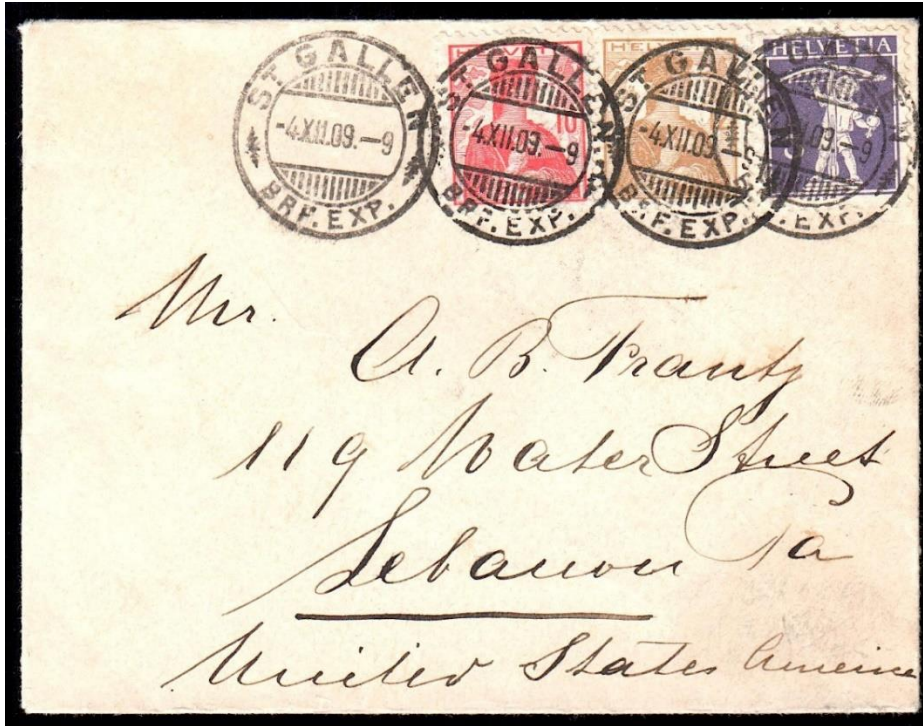 ST GALLEN
-4.XII.09.-9
BRF. EXP.
HELVETIA
10
ST GALLEN
-4.XII.09.-9
BRF. EXP.
HELVETIA
ST GALLEN
-4.XII.09.
BRF. EXP.
HELVETIA
.09.-9
EXP.
Mr.
A. B. Frantz
119 Water Street
Lebanon Pa
United States America